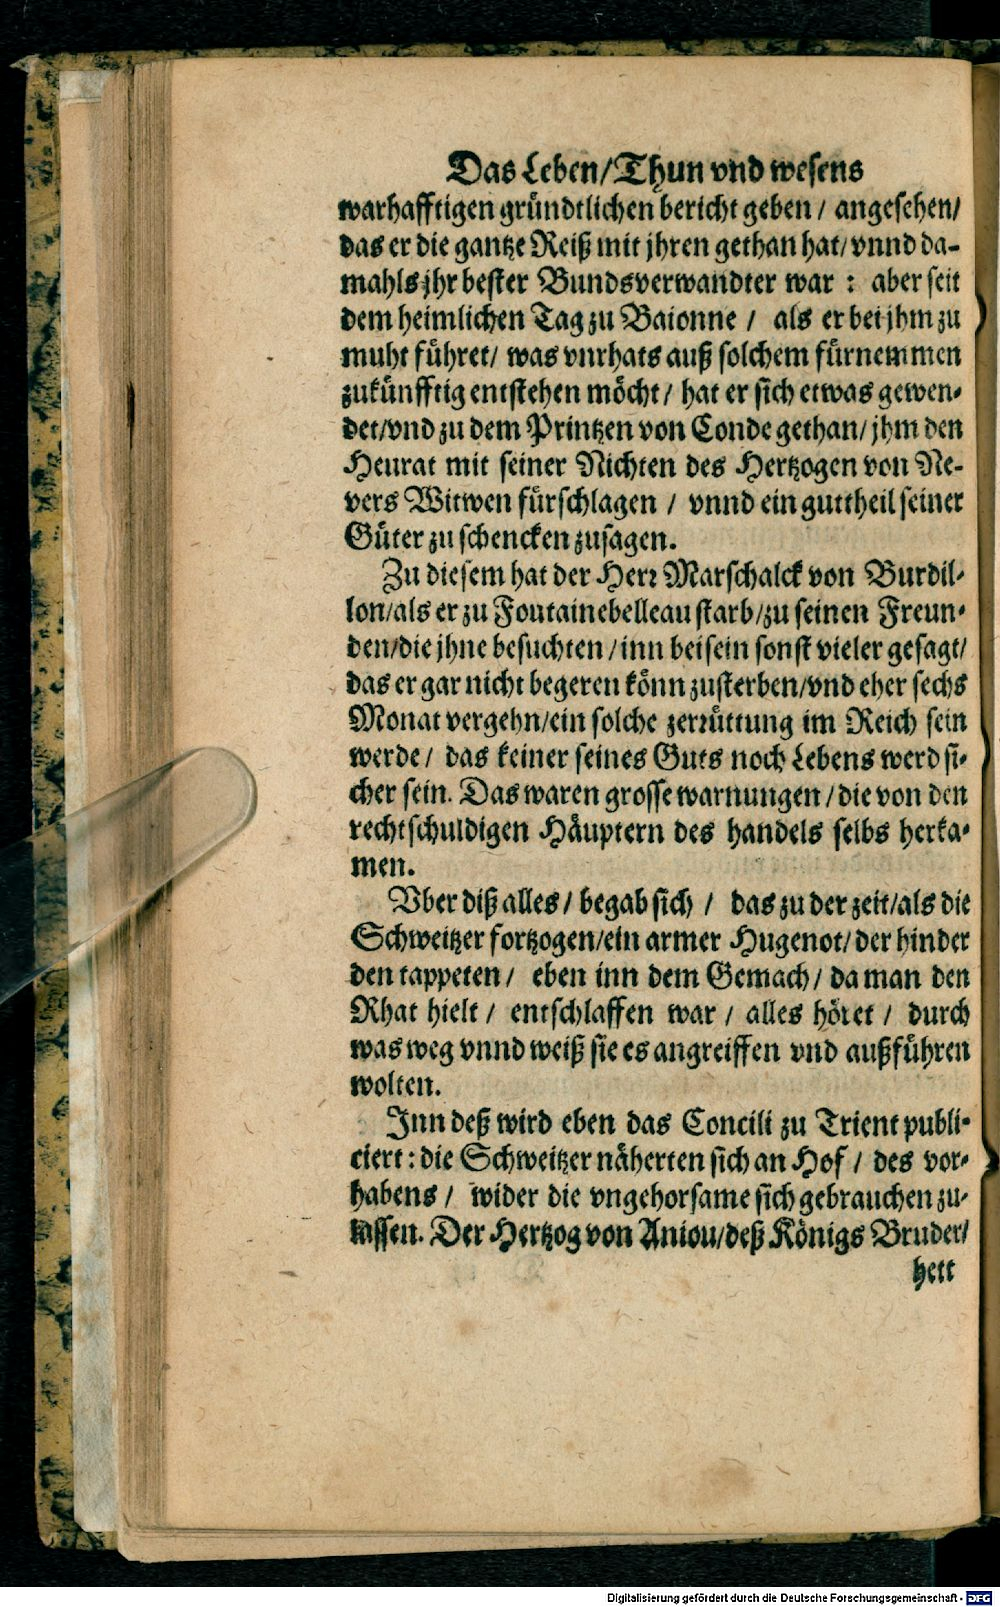 Das Leben/Thun vnd wesens
warhafftigen gründtlichen bericht geben / angesehen/
das er die gantze Reiß mit jhren gethan hat/ vnnd da-
mahls jhr bester Bundsverwandter war : aber seit
dem heimlichen Tag zu Baionne / als er bei jhm zu
muht führet/ was vnrhats auß solchem fürnemmen
zukünfftig entstehen möcht/ hat er sich etwas gewen-
det/vnd zu dem Printzen von Conde gethan/ jhm den
Heurat mit seiner Nichten des Hertzogen von Ne-
vers Witwen fürschlagen / vnnd ein guttheil seiner
Güter zu schencken zusagen.
Zu diesem hat der Herr Marschalck von Burdil-
lon/als er zu Fontainebelleau starb/zu seinen Freun-
den/die jhne besuchten /inn beisein sonst vieler gesagt/
das er gar nicht begeren könn zusterben/vnd eher sechs
Monat vergehn/ein solche zerrüttung im Reich sein
werde/ das keiner seines Guts noch Lebens werd si-
cher sein. Das waren grosse warnungen /die von den
rechtschuldigen Häuptern des handels selbs herka-
men.
Vber diß alles/ begab sich / das zu der zeit/als die
Schweitzer fortzogen/ein armer Hugenot/der hinder
den tappeten/ eben inn dem Gemach/ da man den
Rhat hielt / entschlaffen war / alles höret / durch
was weg vnnd weiß sie es angreiffen vnd außführen
wolten.
Inn deß wird eben das Concili zu Trient publi-
ciert : die Schweitzer näherten sich an Hof / des vor-
habens / wider die vngehorsame sich gebrauchen zu-
lassen. Der Hertzog von Aniou/deß Königs Bruder/
hett
Digitalisierung gefördert durch die Deutsche Forschungsgemeinschaft - DFG